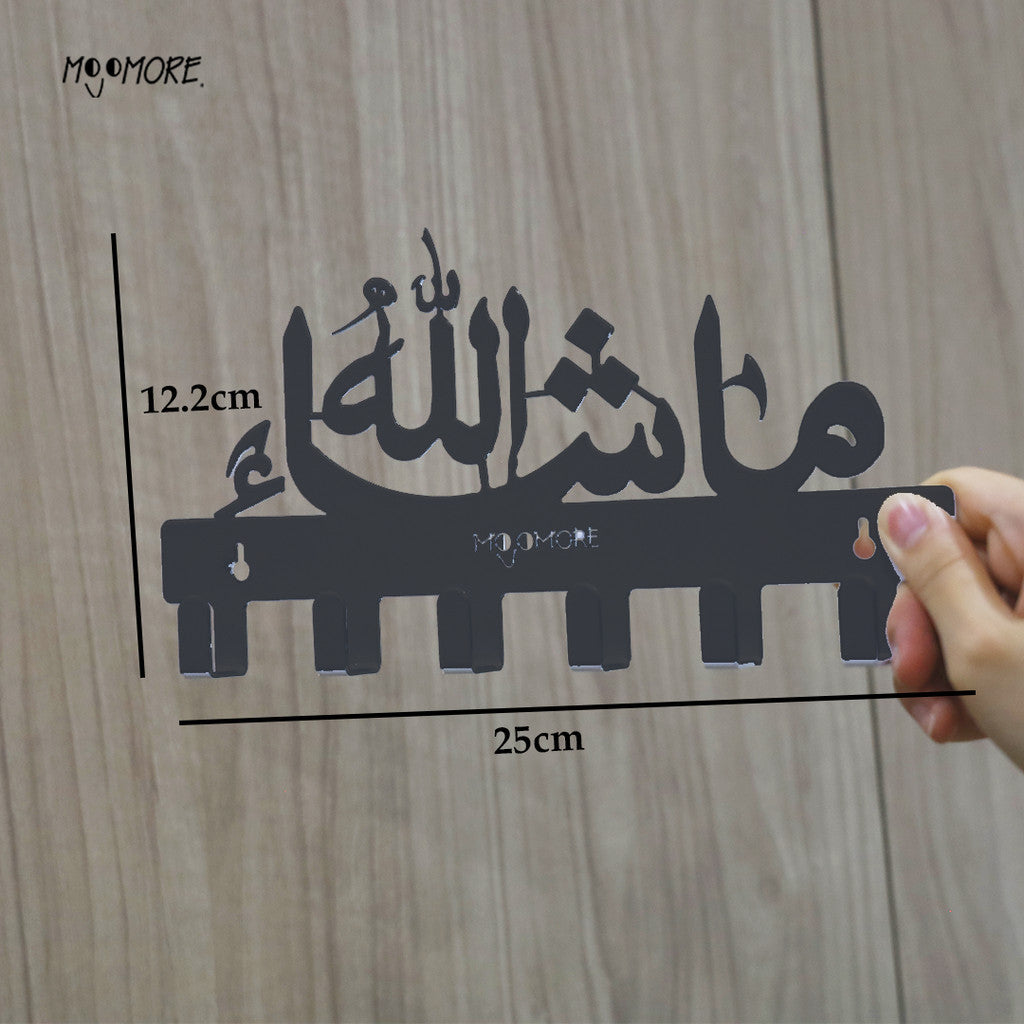 MojoMORE.
ما شاء الله
12.2cm
MojoMORE
25cm